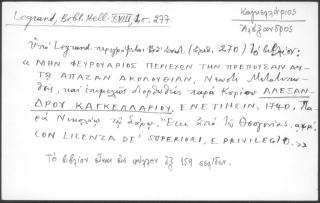 Legrand, Bibl. Hell. XVIII, 1ος. 277
Καγκελλάριος
Ἀλέξανδρος
Ὑπὸ Legrand περιγράφεται (ἀριθ. 270) τὸ βιβλίον:
«ΜΗΝ ΦΕΥΡΟΥΑΡΙΟΣ ΠΕΡΙΕΧΩΝ ΤΗΝ ΠΡΕΠΟΥΣΑΝ ΑΥ-
ΤΩ ΑΠΑΣΑΝ ΑΚΟΛΟΥΘΙΑΝ, Νεωστὶ Μετατυπω-
θείς, καὶ ἐπιμελῶς διορθωθείς παρὰ Κυρίου ΑΛΕΞΑΝ-
ΔΡΟΥ ΚΑΓΚΕΛΛΑΡΙΟΥ, ΕΝΕΤΙΗΣΙΝ, 1740. Πα-
ρὰ Νικολάῳ τῷ Σάρῳ. Ἔτει ἀπὸ τῆς Θεογονίας, αψμ.
CON LICENZA DE' SUPERIORI, E PRIVILEGIO.»
Τὸ βιβλίον εἶναι εἰς φύλλον ἐξ 159 σελίδων.